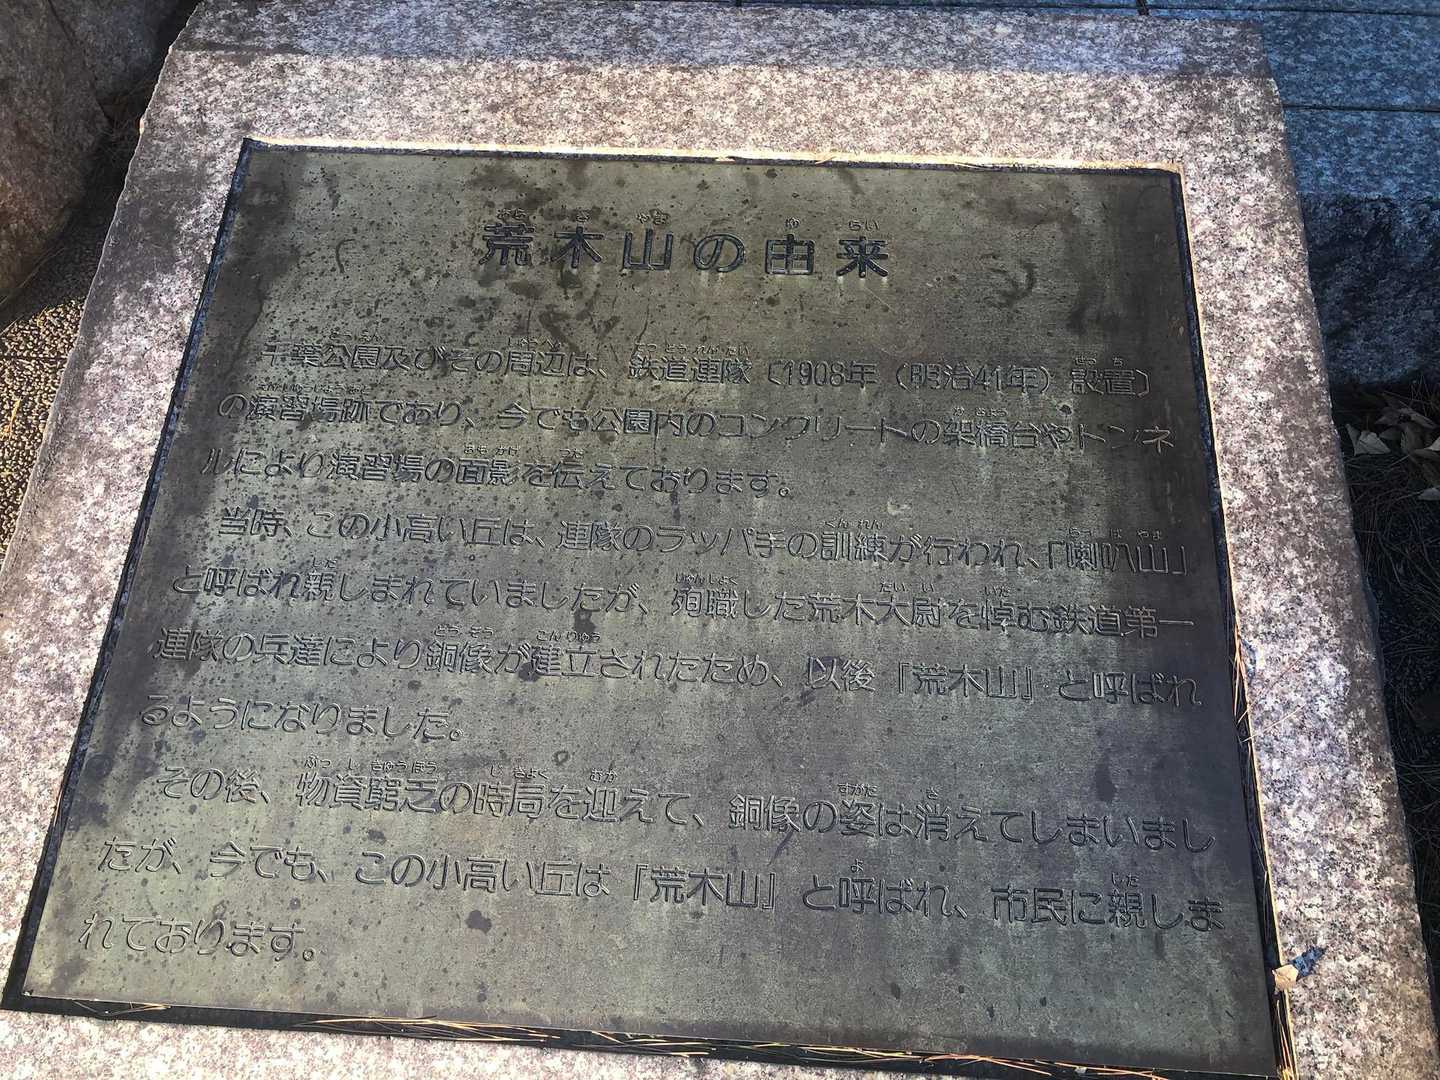 荒木山の由来
千葉公園及びその周辺は、鉄道連隊〔1908年（明治41年）設置〕
の演習場跡であり、今でも公園内のコンクリートの架橋台やトンネ
ルにより演習場の面影を伝えております。
当時、この小高い丘は、連隊のラッパ手の訓練が行われ、「喇叭山」
と呼ばれ親しまれていましたが、殉職した荒木大尉を悼む鉄道第一
連隊の兵達により銅像が建立されたため、以後『荒木山』と呼ばれ
るようになりました。
その後、物資窮乏の時局を迎えて、銅像の姿は消えてしまいまし
たが、今でも、この小高い丘は『荒木山』と呼ばれ、市民に親しま
れております。